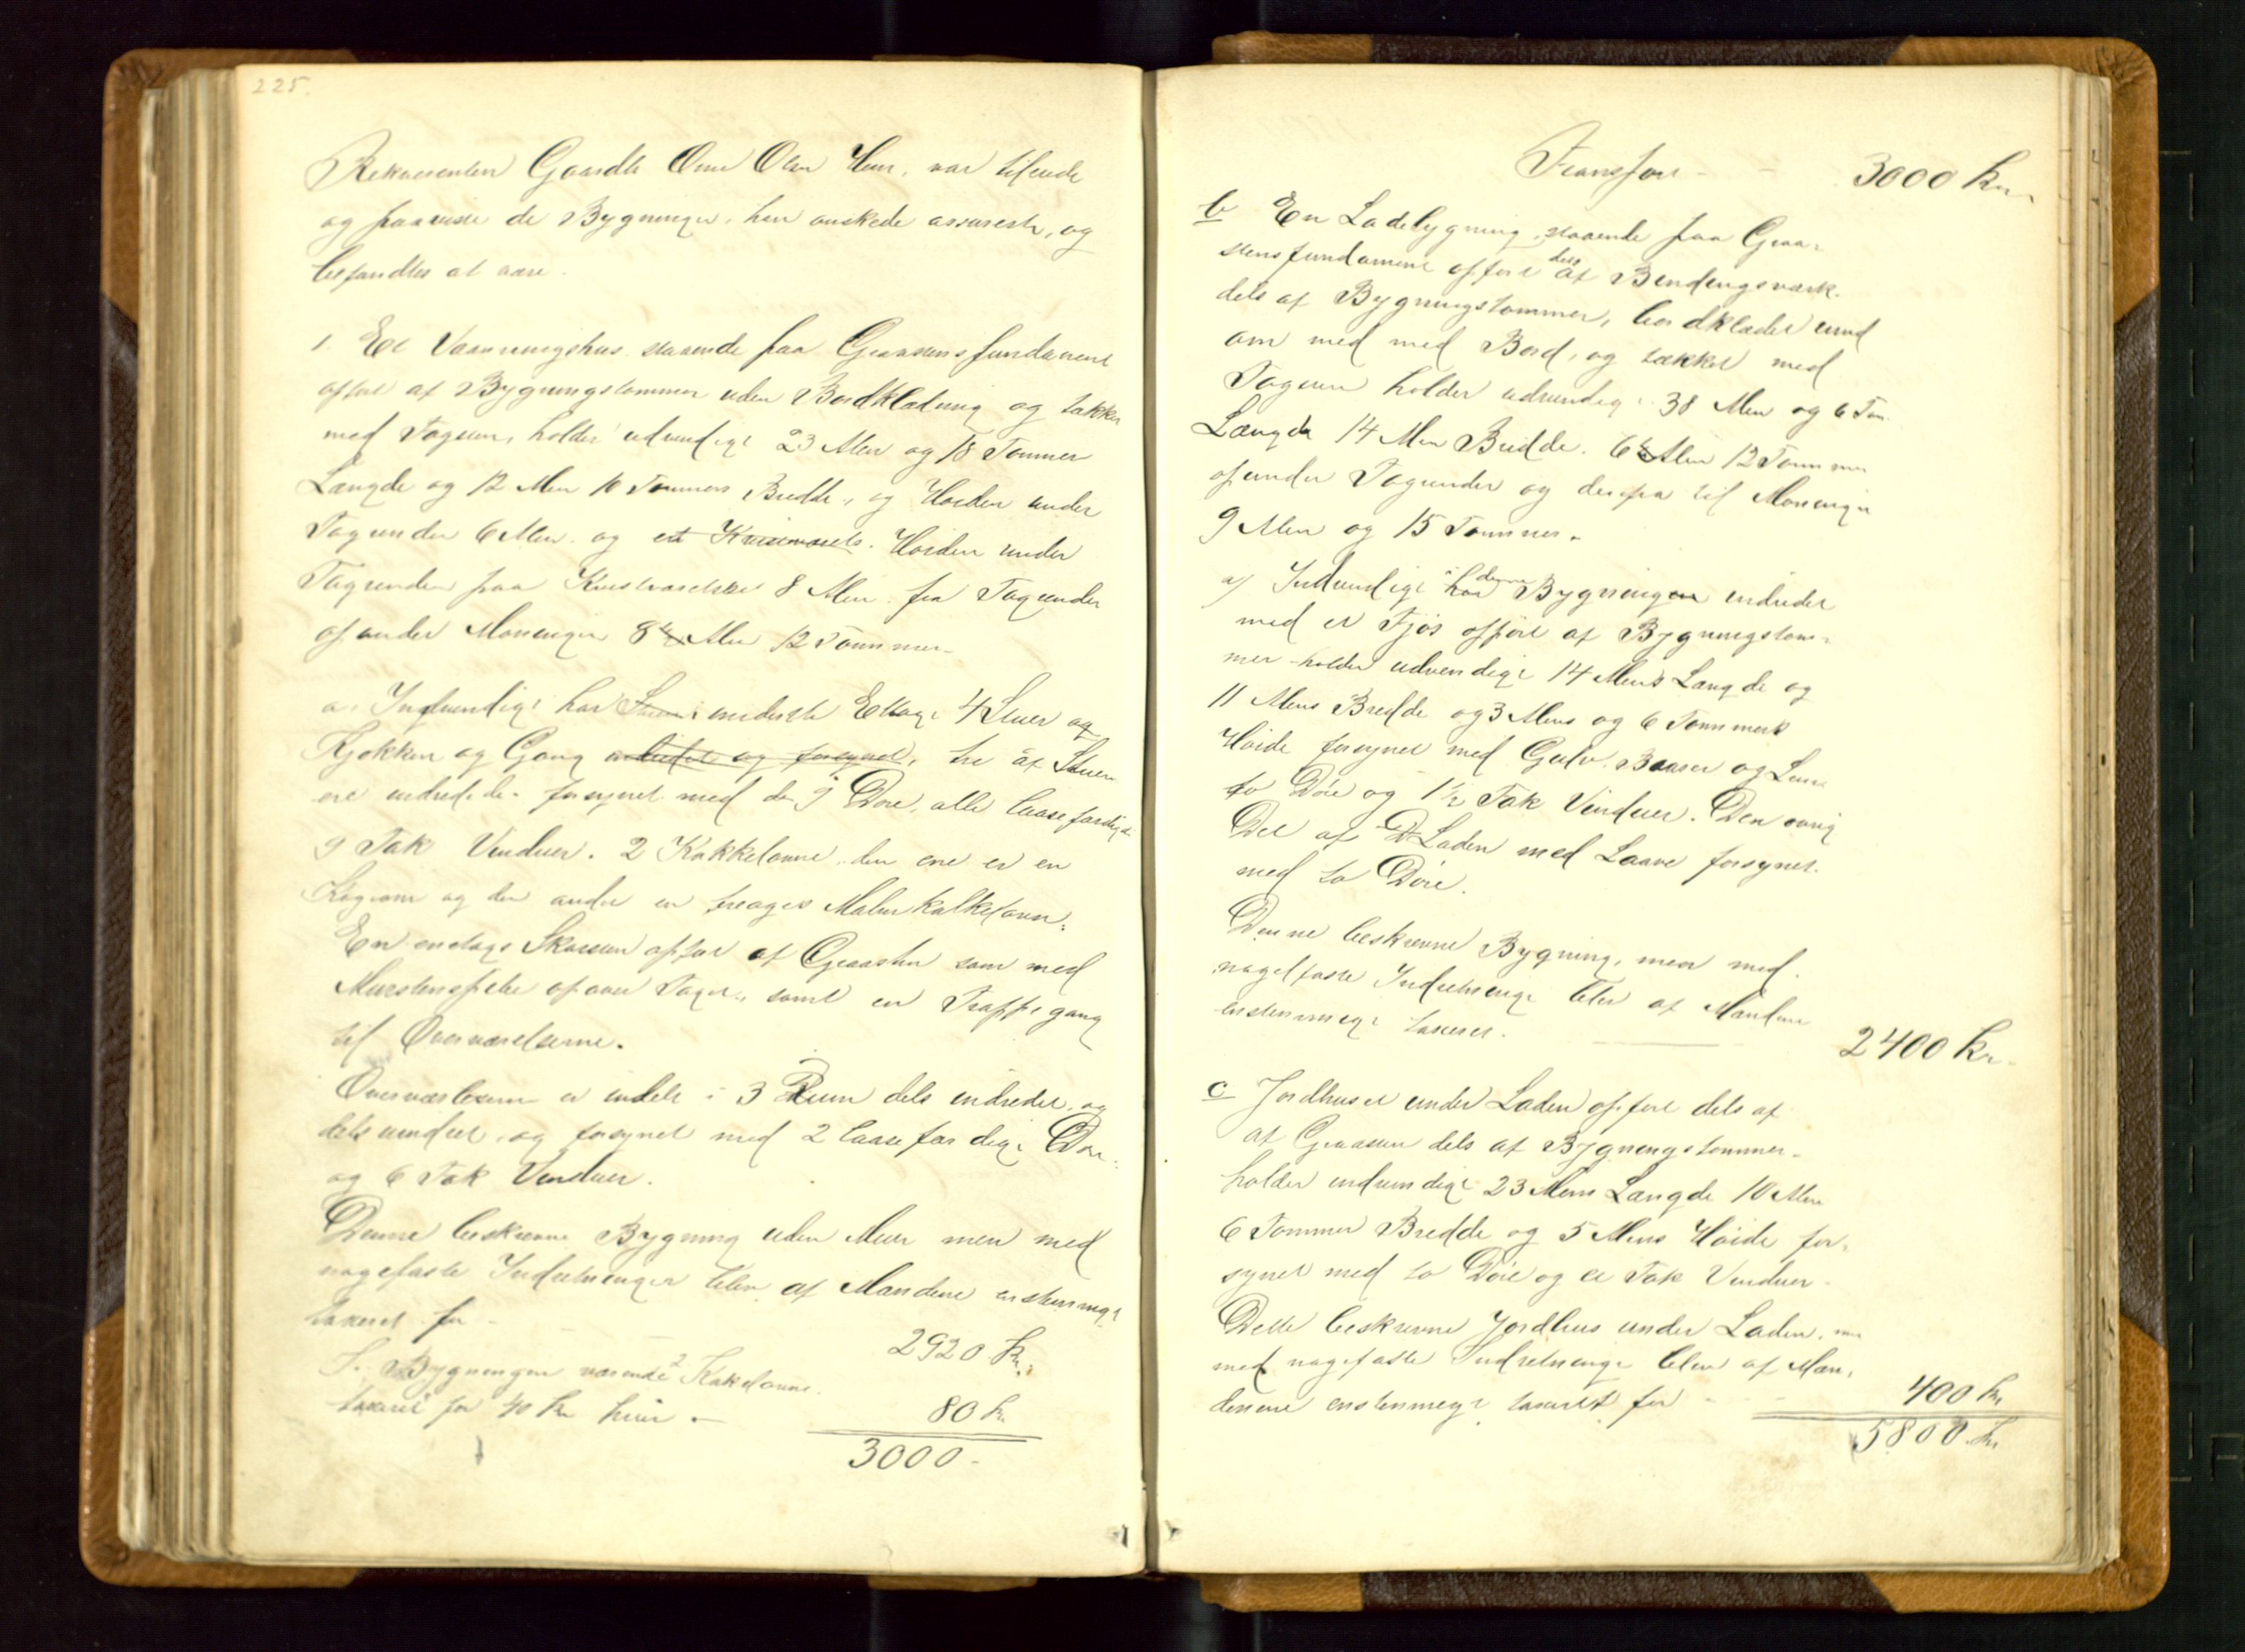 225.
Rekvirenten Gaardbr Ole Olsen, var tilstede
og paaviste de Bygninger, han ønskede assurerte, og
befandtes at være.
1. Et Vaaningshus staaende paa Graastensfundament
opført af Bygningstømmer uden Bordklædning og tækket
med Tagsten, holder udvendigt 23 Alen og 18 Tommer
Længde og 12 Alen 10 Tommers Bredde, og Høiden under
Tagrenden 6 Alen og et Høiden under
Tagrenden paa 8 Alen fra Tagrenden
op under Mønningen 8 Alen 12 Tommer
a. Indvendigt har i underste Etage 4 Stuer og
Kjøkken og Gang indredet og forsynet, tre af Stuerne
ere indredede forsynet med 9 Døre, alle laasefærdige
9 Fak Vinduer. 2 Kakkelovne, den ene er en
Kogeovn og den anden en treetages Kakkelovn.
En enetages Skorsten opført af Graasten som med
Murstenspibe op over Taget, samt en Trappegang
til Overværelserne.
Overværelserne er indelt i 3 Rum dels indredet og
dels uindret, og forsynet med 2 laasefærdige Døre
og 6 Fak Vinduer.
Denne beskrevne Bygning uden Mur men med
nagelfaste Indretninger blev af Mændene enstemmigt
taxeret for
2920 Kr.
I Bygningen værende 2 Kakelovne
taxeret for 40 Kr hver. 80 Kr
3000 -
Transport - - 3000 Kr.
b En Ladebygning staaende paa Graa-
stensfundament opført dels af Bindingsværk
dels af Bygningstømmer, bordklædet rund
om med med Bord, og tækket med
Tagsten holder udvendigt 38 Alen og 6 Tom.
Længde 14 Alen Bredde. 6 Alen 12 Tommer
op under Tagrenden og derfra til Mønningen
9 Alen og 15 Tommer.
a) Indvendigt har denne Bygning indredet
med et Fjøs opført af Bygningstøm-
mer holder udvendigt 14 Alens Længde og
11 Alens Bredde og 3 Alens og 6 Tommers
Høide forsynet med Gulv. Baaser og
to Døre og 1½ Fak Vinduer. Den øvrige
Del af Laden med Laave forsynet
med to Døre.
Denne beskrevne Bygning, men med
nagelfaste Indretninger blev af Mændene
enstemmigt taxeret. 2400 Kr.
c Jordhuset under Laden opført dels af
af Graasten dels af Bygningstømmer
holder indvendigt 23 Alens Længde 10 Alen
6 Tommer Bredde og 5 Alens Høide for-
synet med to Døre og et Fak Vinduer.
Dette beskrevne Jordhus under Laden,
med nagelfaste Indretninger blev af Mæn-
denene enstemmigt taxeret for - - 400 Kr
5800 Kr